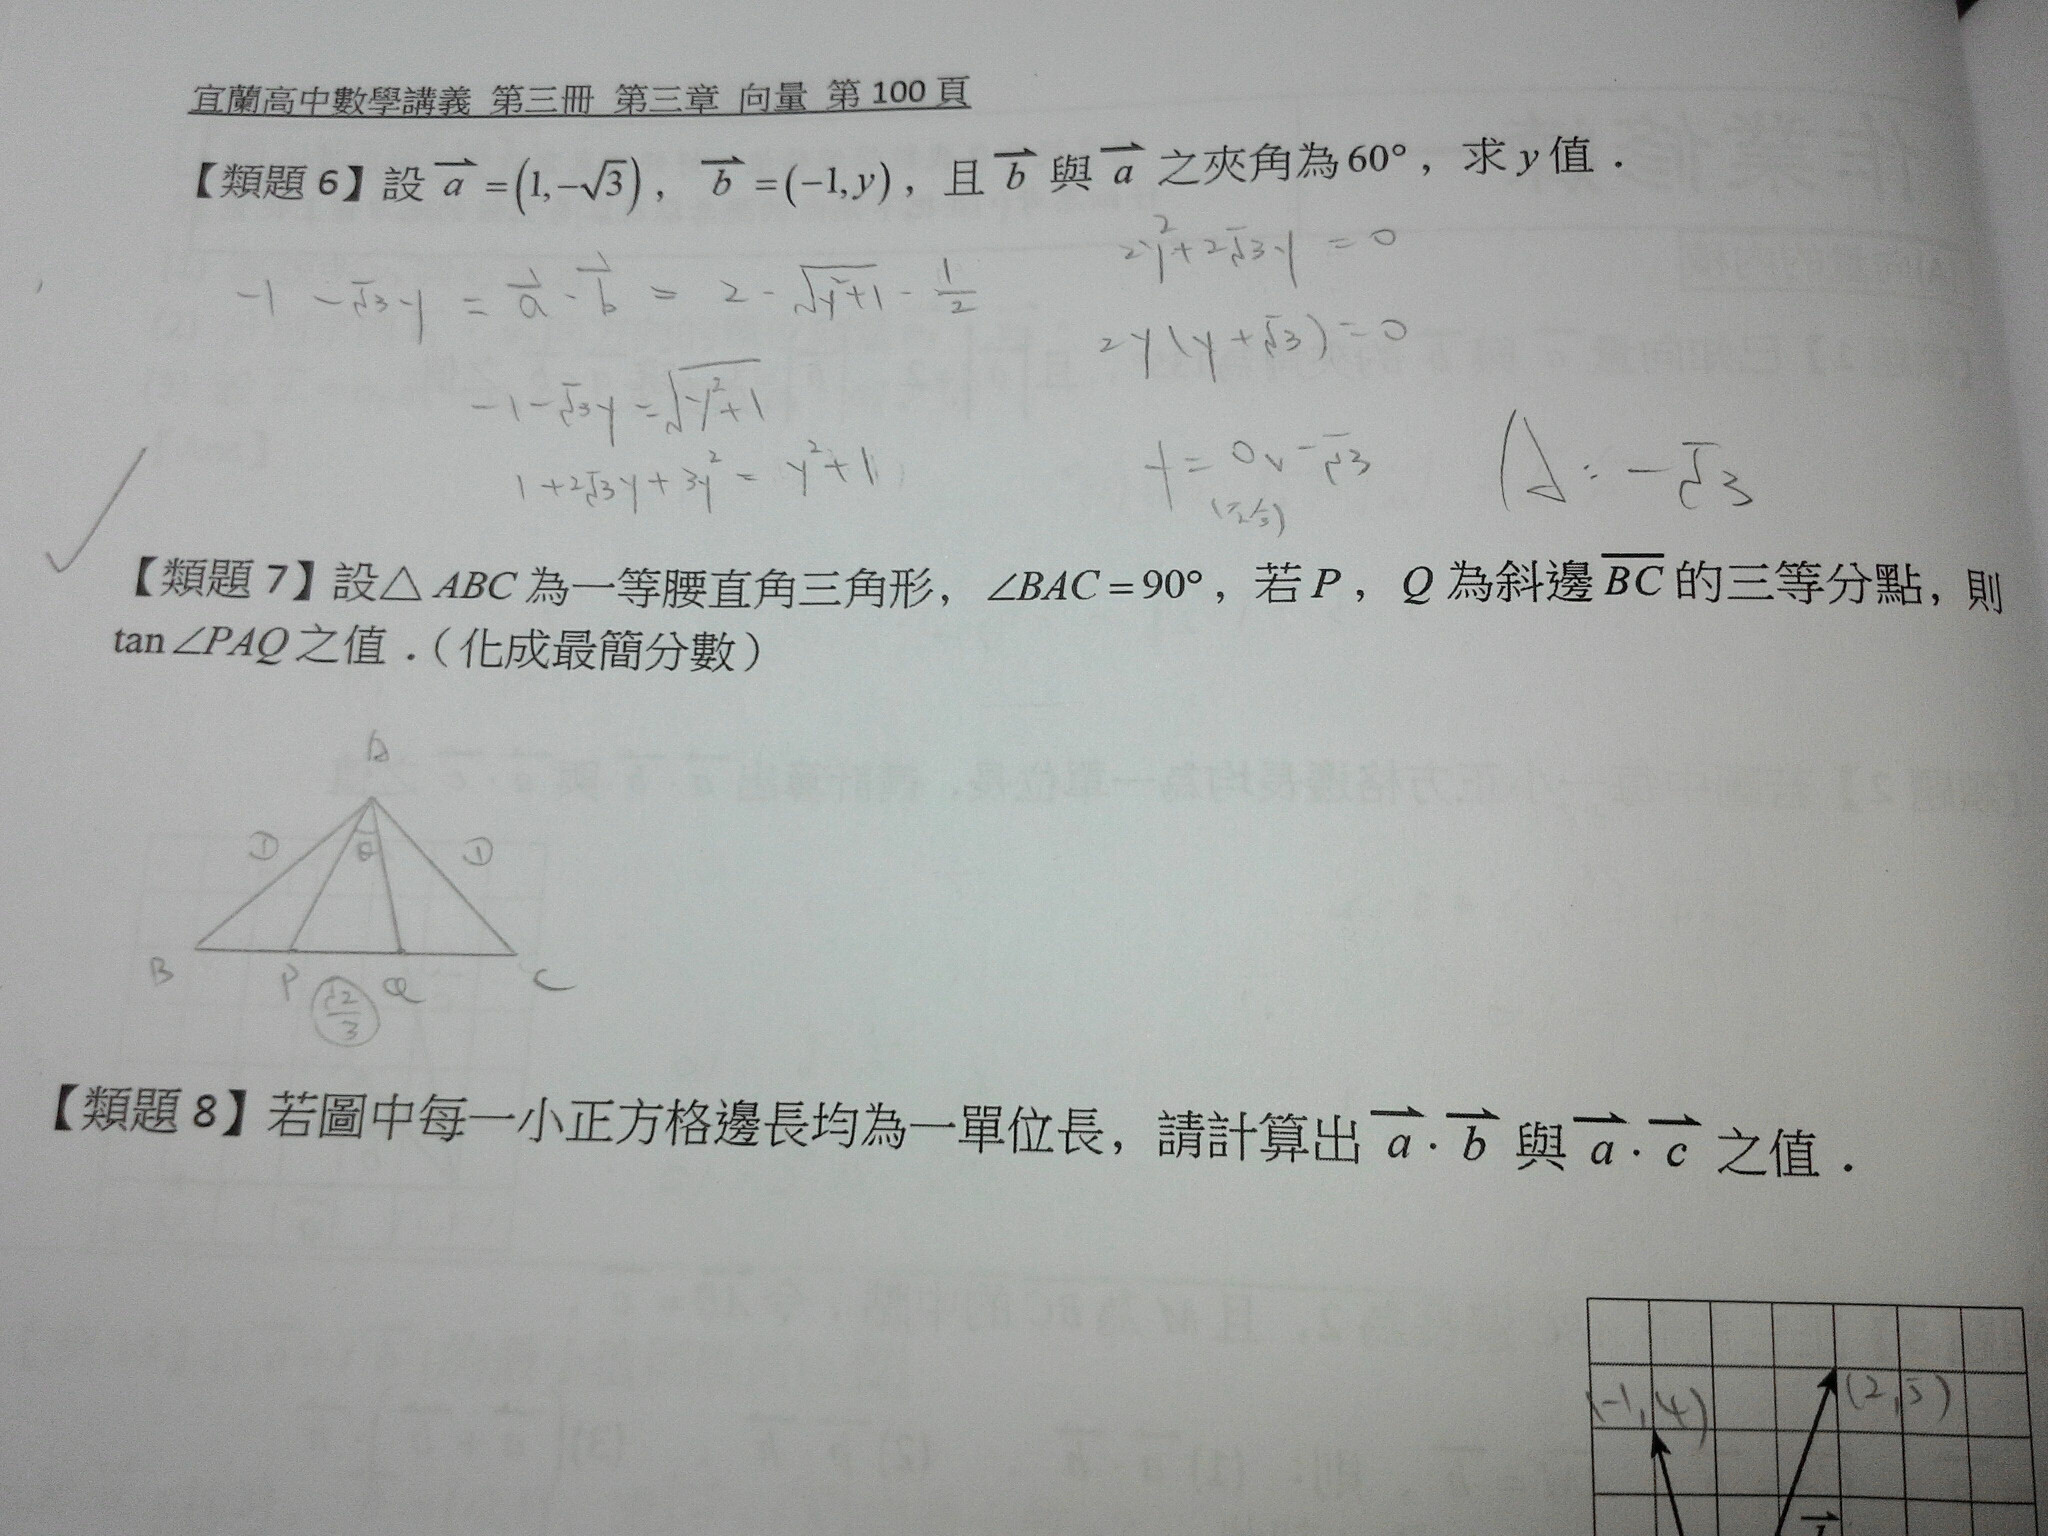 宜蘭高中數學講義 第三冊 第三章 向量 第 100 頁
【類題 6】設 a = (1, -√3), b = (-1, y), 且 b 與 a 之夾角為 60°, 求 y 值.
-1 - √3y = a · b = 2 · √(y²+1) · 1/2
-1 - √3y = √(y²+1)
1 + 2√3y + 3y² = y² + 1
2y² + 2√3y = 0
2y(y + √3) = 0
y = 0 ∨ -√3
A: -√3
【類題 7】設△ ABC 為一等腰直角三角形, ∠BAC = 90°, 若 P, Q 為斜邊 BC 的三等分點, 則
tan∠PAQ 之值.(化成最簡分數)
A
1 θ 1
B P Q C
√2/3
【類題 8】若圖中每一小正方格邊長均為一單位長, 請計算出 a · b 與 a · c 之值.
(2,5)
(-1,4)